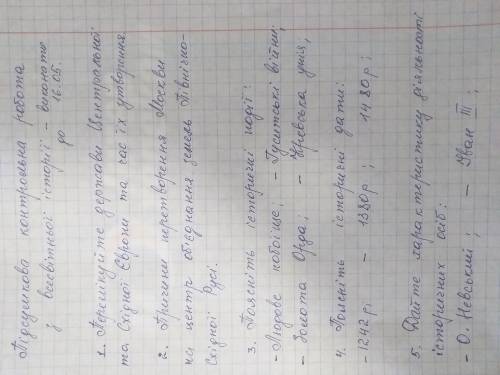 Підсумкова контрольна робота
з всесвітньої історії – виконати
до 16.05.
1. Перелікуйте держави Центральної
та Східної Європи та час їх утворення.
2. Причини перетворення Москви
на центр об'єднання земель Північно-
Східної Русі.
3. Поясніть історичні події:
- Льодове побоїще; - Гуситські війни;
- Золота Орда; - Кревська унія,
4. Поясніть історичні дати:
- 1242 р; - 1380 р; 1480 р;
5. Дайте характеристику діяльності
історичних осіб:
- О. Невський; - Іван III;